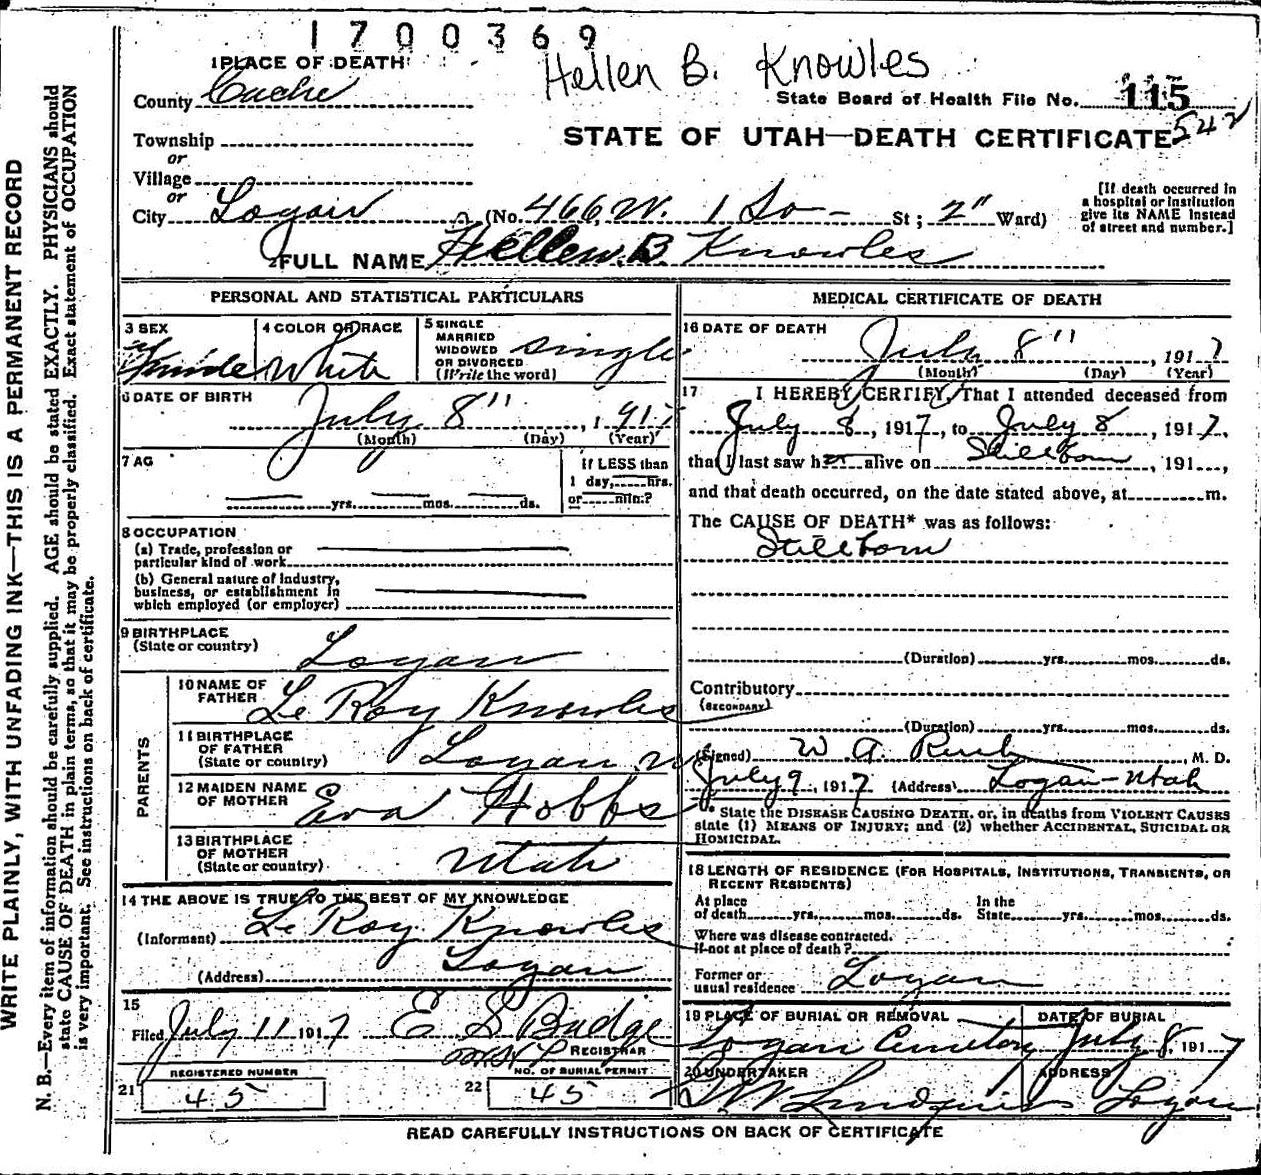 1700369
1 PLACE OF DEATH
Hellen B. Knowles
County Cache
State Board of Health File No. 115
542
Township
STATE OF UTAH—DEATH CERTIFICATE
or
Village
or
City Logan (No. 466 W. 1 So - St; 2" Ward)
[If death occurred in a hospital or institution give its NAME instead of street and number.]
2 FULL NAME Hellen B. Knowles
PERSONAL AND STATISTICAL PARTICULARS
3 SEX
4 COLOR OR RACE White
5 SINGLE MARRIED WIDOWED OR DIVORCED (Write the word) Single
6 DATE OF BIRTH July 8", 1917
(Month) (Day) (Year)
7 AG
yrs. mos. ds.
If LESS than 1 day, hrs. or min.?
8 OCCUPATION
(a) Trade, profession or particular kind of work
(b) General nature of industry, business, or establishment in which employed (or employer)
9 BIRTHPLACE (State or country) Logan
PARENTS
10 NAME OF FATHER Le Roy Knowles
11 BIRTHPLACE OF FATHER (State or country) Logan
12 MAIDEN NAME OF MOTHER Eva Hobbs
13 BIRTHPLACE OF MOTHER (State or country) Utah
14 THE ABOVE IS TRUE TO THE BEST OF MY KNOWLEDGE
(Informant) Le Roy Knowles
(Address) Logan
15
Filed July 11 1917 E S Budge
REGISTRAR
REGISTERED NUMBER
NO. OF BURIAL PERMIT
21 45
22 45
MEDICAL CERTIFICATE OF DEATH
16 DATE OF DEATH
July 8", 1917
(Month) (Day) (Year)
17 I HEREBY CERTIFY, That I attended deceased from
July 8, 1917, to July 8, 1917,
that I last saw h alive on Stillborn, 191 ,
and that death occurred, on the date stated above, at m.
The CAUSE OF DEATH* was as follows:
Stillborn
(Duration) yrs. mos. ds.
Contributory
(SECONDARY)
(Duration) yrs. mos. ds.
(Signed) W. A. , M. D.
July 9, 1917 (Address) Logan-Utah
* State the DISEASE CAUSING DEATH, or, in deaths from VIOLENT CAUSES
state (1) MEANS OF INJURY; and (2) whether ACCIDENTAL, SUICIDAL OR
HOMICIDAL.
18 LENGTH OF RESIDENCE (FOR HOSPITALS, INSTITUTIONS, TRANSIENTS, OR
RECENT RESIDENTS)
At place of death yrs. mos. ds. In the State yrs. mos. ds.
Where was disease contracted.
if not at place of death?
Former or usual residence Logan
19 PLACE OF BURIAL OR REMOVAL
DATE OF BURIAL
Logan Cemetery July 8, 1917
20 UNDERTAKER
ADDRESS
Logan
READ CAREFULLY INSTRUCTIONS ON BACK OF CERTIFICATE
WRITE PLAINLY, WITH UNFADING INK—THIS IS A PERMANENT RECORD
N. B.—Every item of information should be carefully supplied. AGE should be stated EXACTLY. PHYSICIANS should
state CAUSE OF DEATH in plain terms, so that it may be properly classified. Exact statement of OCCUPATION
is very important. See instructions on back of certificate.